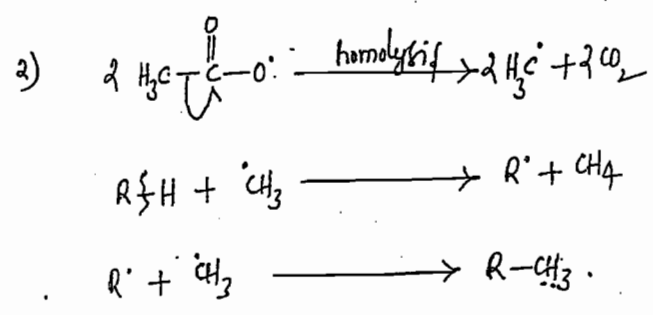 O
2) 2 H₃C–C–O· homolysis → 2 H₃C· + 2CO₂
R–H + ·CH₃ → R· + CH₄
R· + ·CH₃ → R–CH₃.